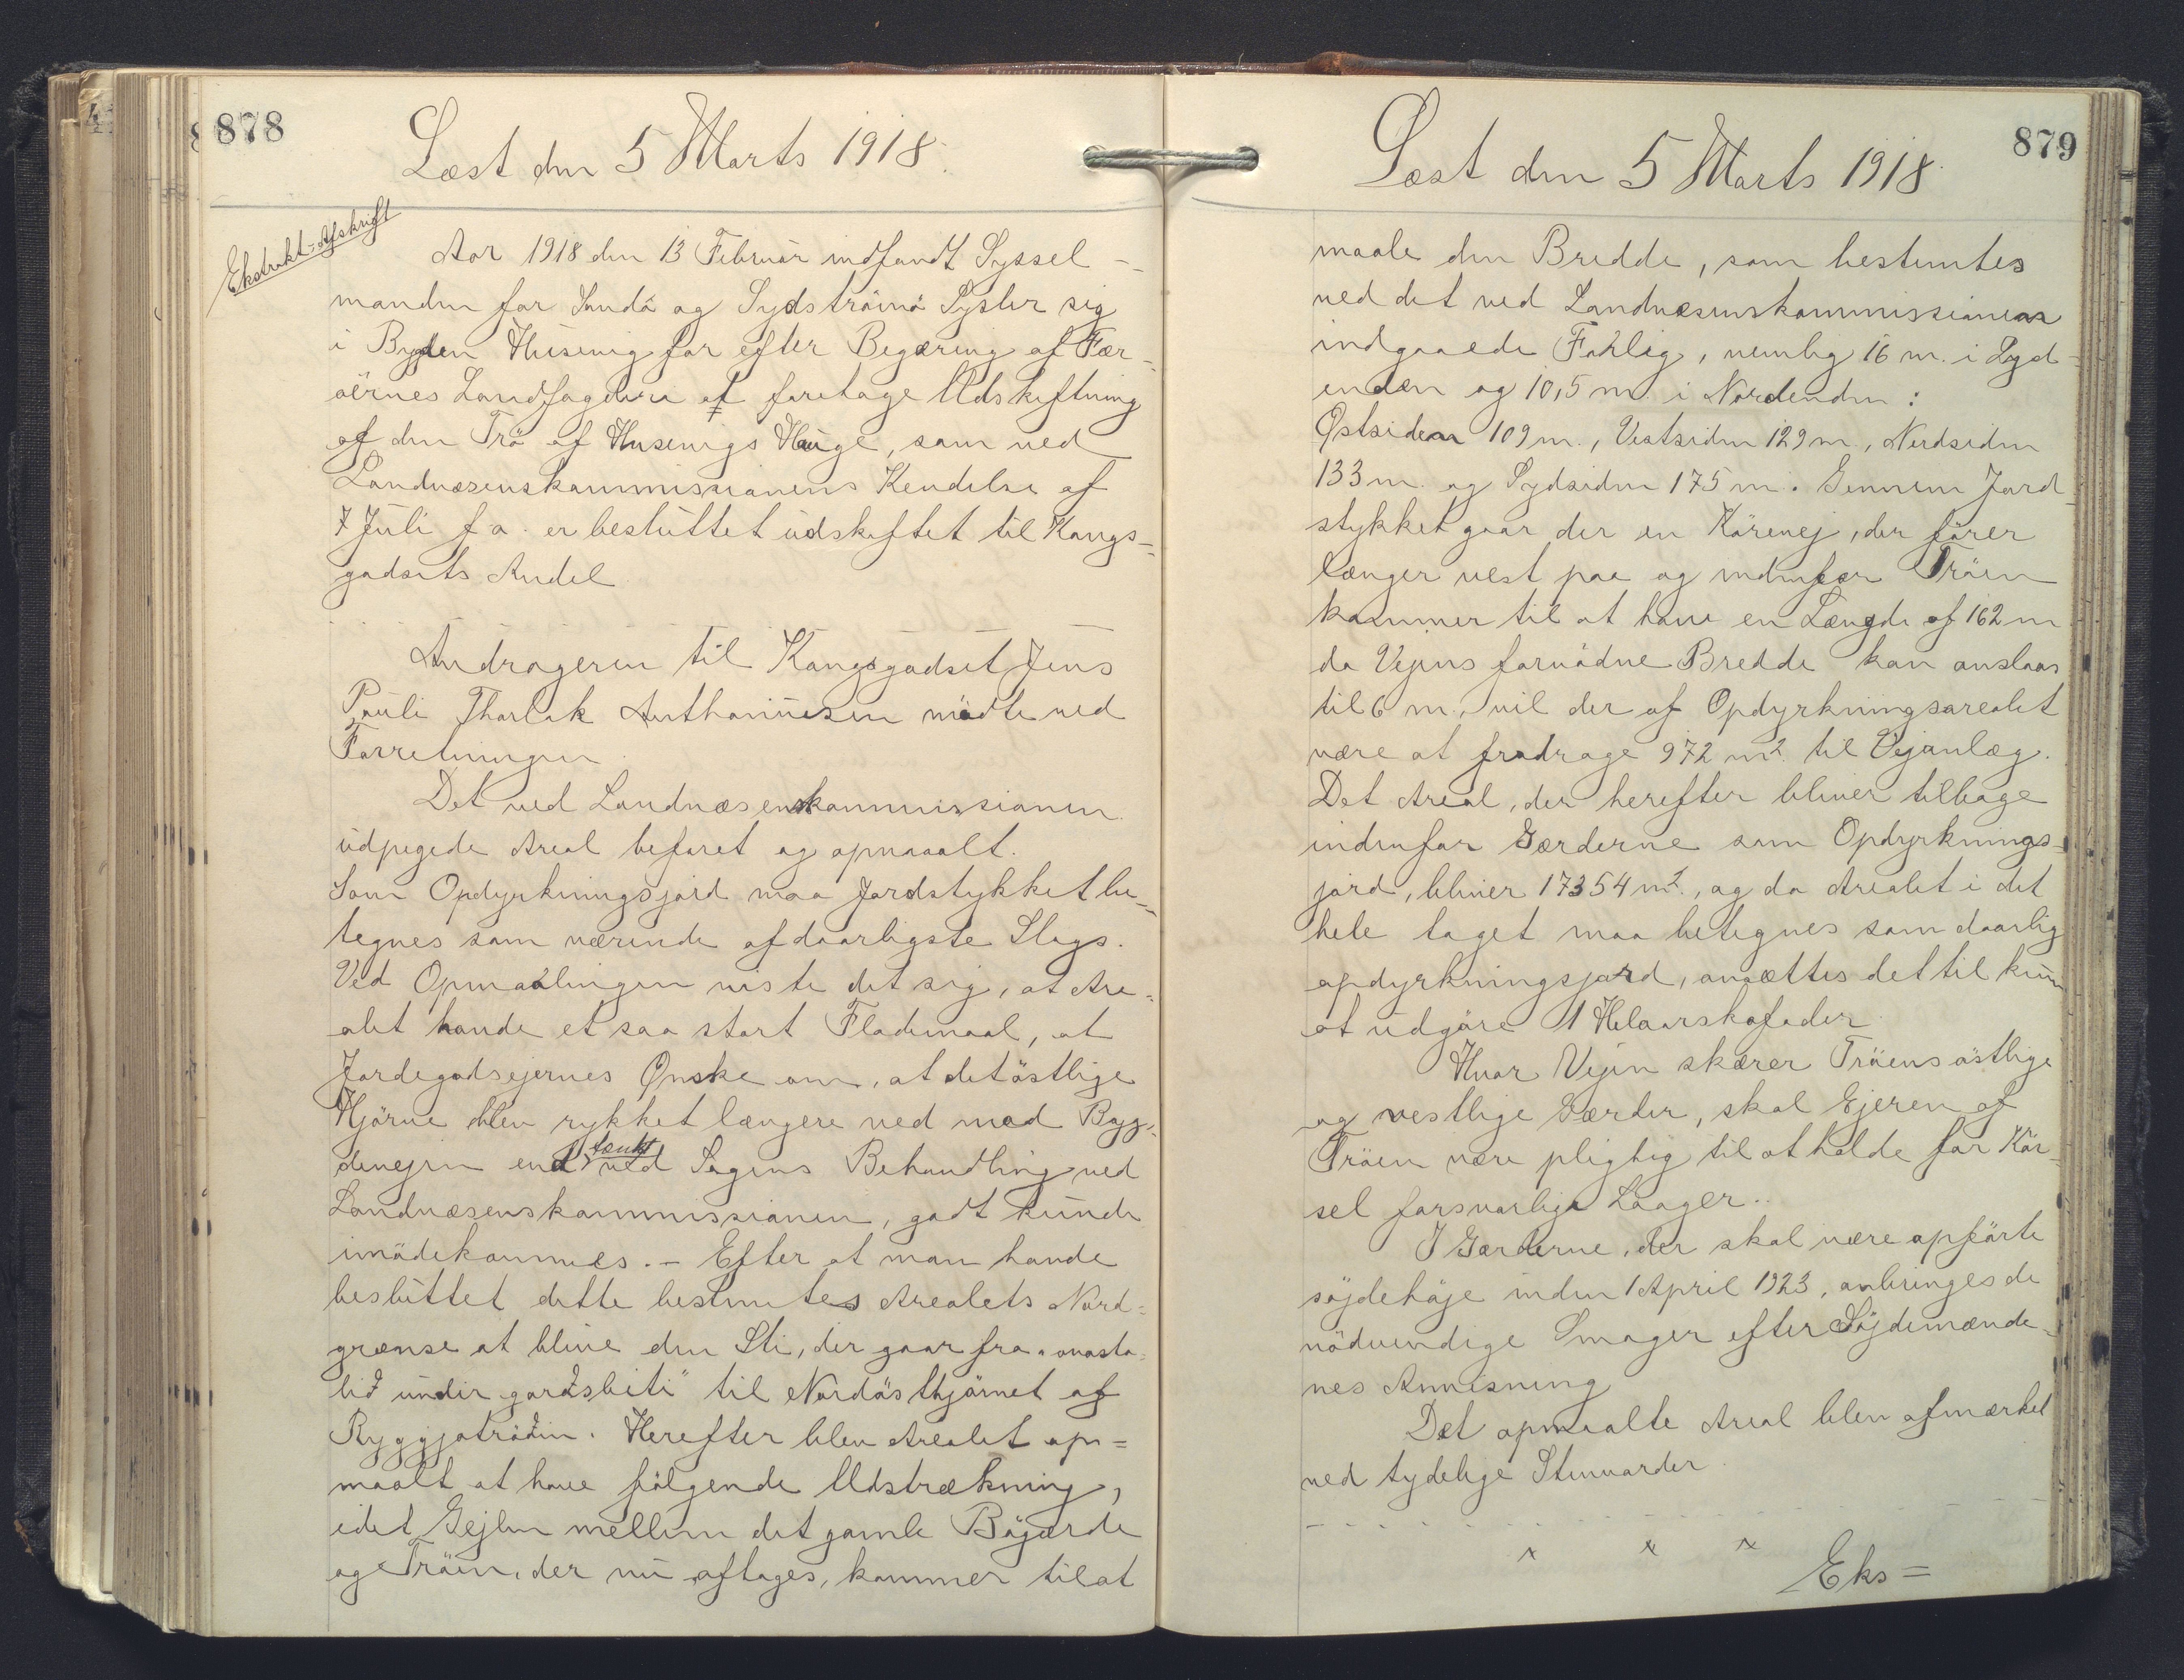 878
Læst den 5 Marts 1918.
Ekstrakt-Afskrift
Aar 1918 den 13 Februar indfandt Syssel-
manden for Sandö og Sydströmö Sysler sig
i Bygden Husevig for efter Begæring af Fær-
öernes Landfogderi at foretage Udskiftning
af den Trö af Husevigs Hauge, som ved
Landvæsenskommissionens Kendelse af
7 Juli f a. er besluttet udskiftet til Kongs-
godsets Andel
Andrageren til Kongsgodset Jens
Pauli Thorlak Anthoniesen mödte ved
Forretningen
Det ved Landvæsenskommissionen
udpegede Areal befaret og opmaalt.
Som Opdyrkningsjord maa Jordstykket be-
tegnes som værende af daarligste Slags.
Ved Opmaalingen viste det sig, at Are-
alet havde et saa stort Flademaal, at
Jordegodsejernes Ønske om, at det östlige
Hjörne blev rykket længere ned mod Byg-
devejen end tænkt ved Sagens Behandling ved
Landvæsenskommissionen, godt kunde
imödekommes. - Efter at man havde
besluttet dette bestemtes Arealets Nord-
grænse at blive den Sti, der gaar fra „ovasta
lið undir gardsbeiti" til Nordösthjörnet af
Ryggjatröðin. Herefter blev Arealet op=
maalt at have fölgende Udstrækning,
idet Gejlen mellem det gamle Bögærde
og Tröen, der nu aftages, kommer til at
879
Læst den 5 Marts 1918.
maale den Bredde, som bestemtes
ved det ved Landvæsenskommissionen
indgaaede Forlig, nemlig 16 m. i Syd-
enden og 10,5 m. i Nordenden:
Østsiden 109 m., Vestsiden 129 m, Nordsiden
133 m. og Sydsiden 175 m. Gennem Jord-
stykket gaar der en Körevej, der förer
længer vest paa og indenfor Tröen
kommer til at have en Længde af 162 m
da Vejens fornödne Bredde kan anslaas
til 6 m, vil der af Opdyrkningsarealet
være at fradrage 972 m². til Vejanlæg.
Det Areal, der herefter bliver tilbage
indenfor Gærderne som Opdyrknings-
jord, bliver 17354 m²., og da Arealet i det
hele taget maa betegnes som daarlig
opdyrkningsjord, ansættes det til kun
at udgöre 1 Helaarskofoder
Hvor Vejen skærer Tröens östlige
og vestlige Gærder, skal Ejeren af
Tröen være pligtig til at holde for Kör-
sel forsvarlige Laager..
I Gærderne, der skal være opförte
söjdehöje inden 1 April 1923, anbringes de
nödvendige Smoger efter Söjdemænde-
nes Anvisning
Det opmaalte Areal blev afmærket
ved tydelige Stenvarder.
x x x
Eks=